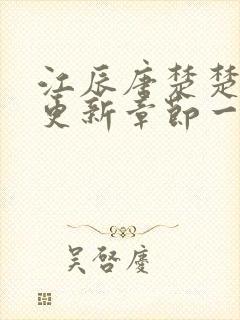 江辰唐楚楚
更新章节一
吴启庆